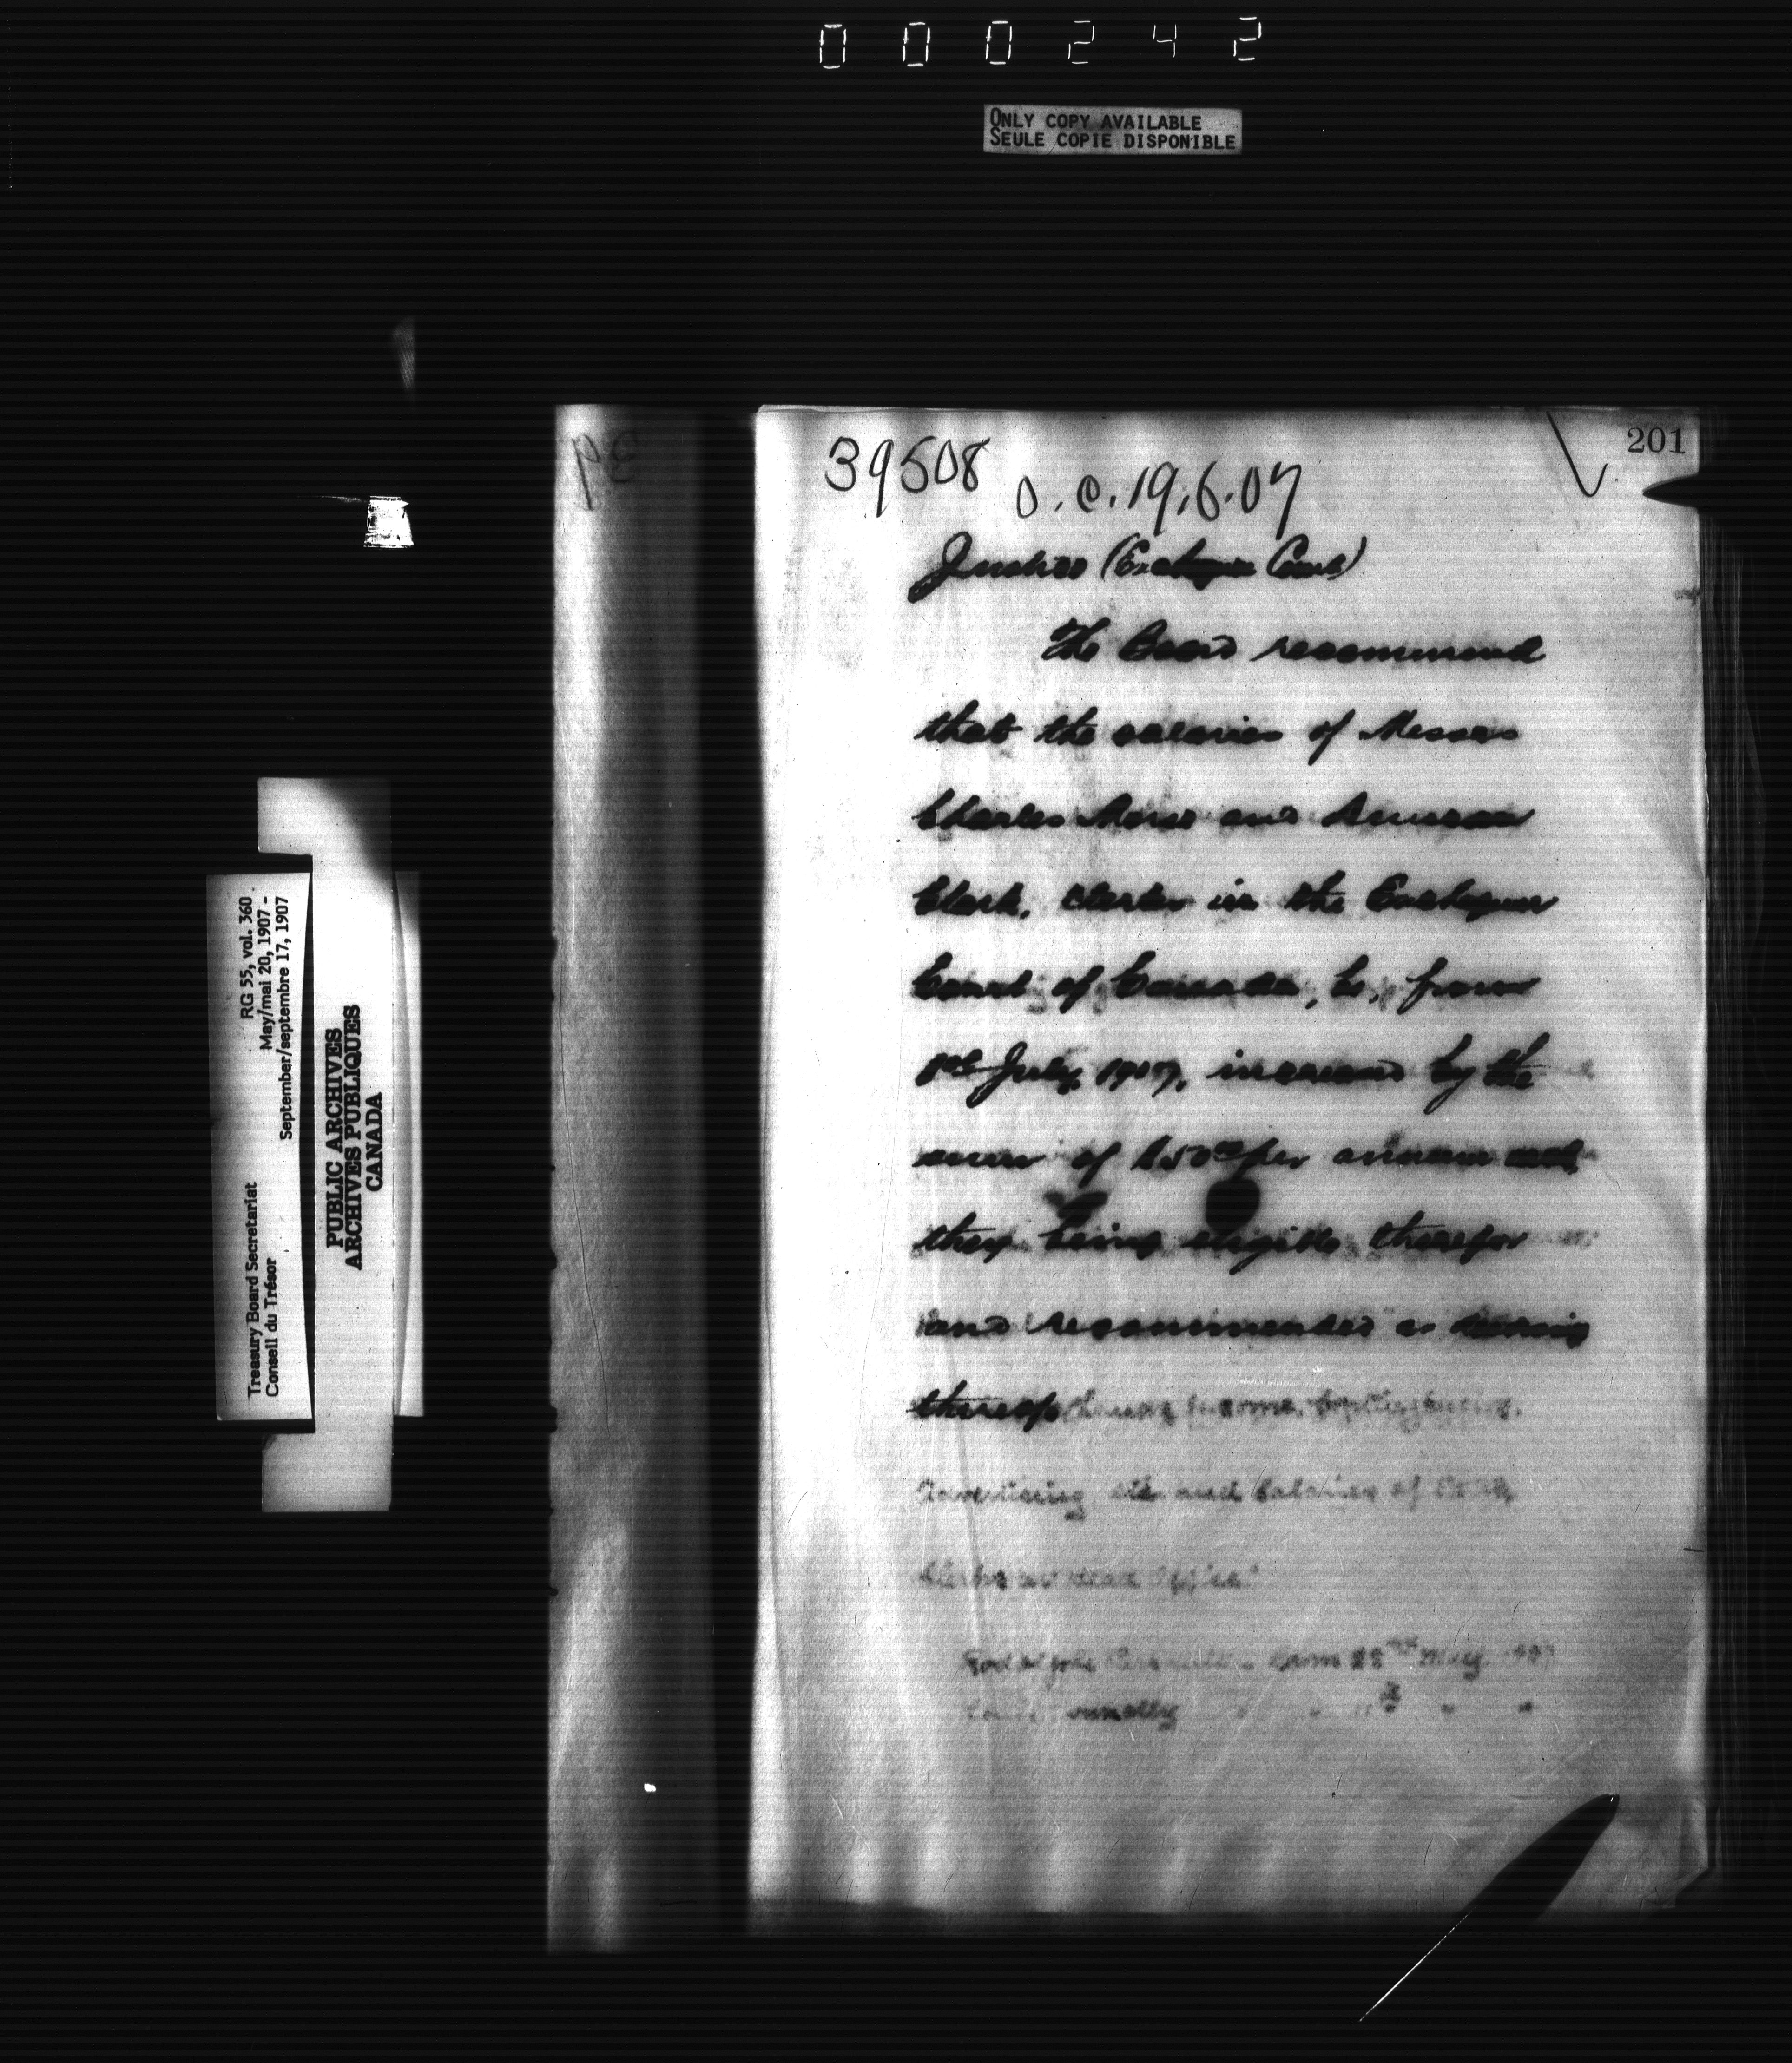 000242
ONLY COPY AVAILABLE
SEULE COPIE DISPONIBLE
201
39508 O.C. 19.6.07
Justice (Exchequer Court)
The Board recommend
that the salaries of Messrs
Charles Morse and Duncan
Clark, clerks in the Exchequer
Court of Canada, be, from
1st July, 1907, increased by the
sum of $50 00 per annum each,
they being eligible therefor
and recommended as deserving
thereof
Advertising etc. and Salaries of
Office
from 22nd May 1907
RG 55, vol. 360
May/mai 20, 1907 -
September/septembre 17, 1907
Treasury Board Secretariat
Conseil du Trésor
PUBLIC ARCHIVES
ARCHIVES PUBLIQUES
CANADA